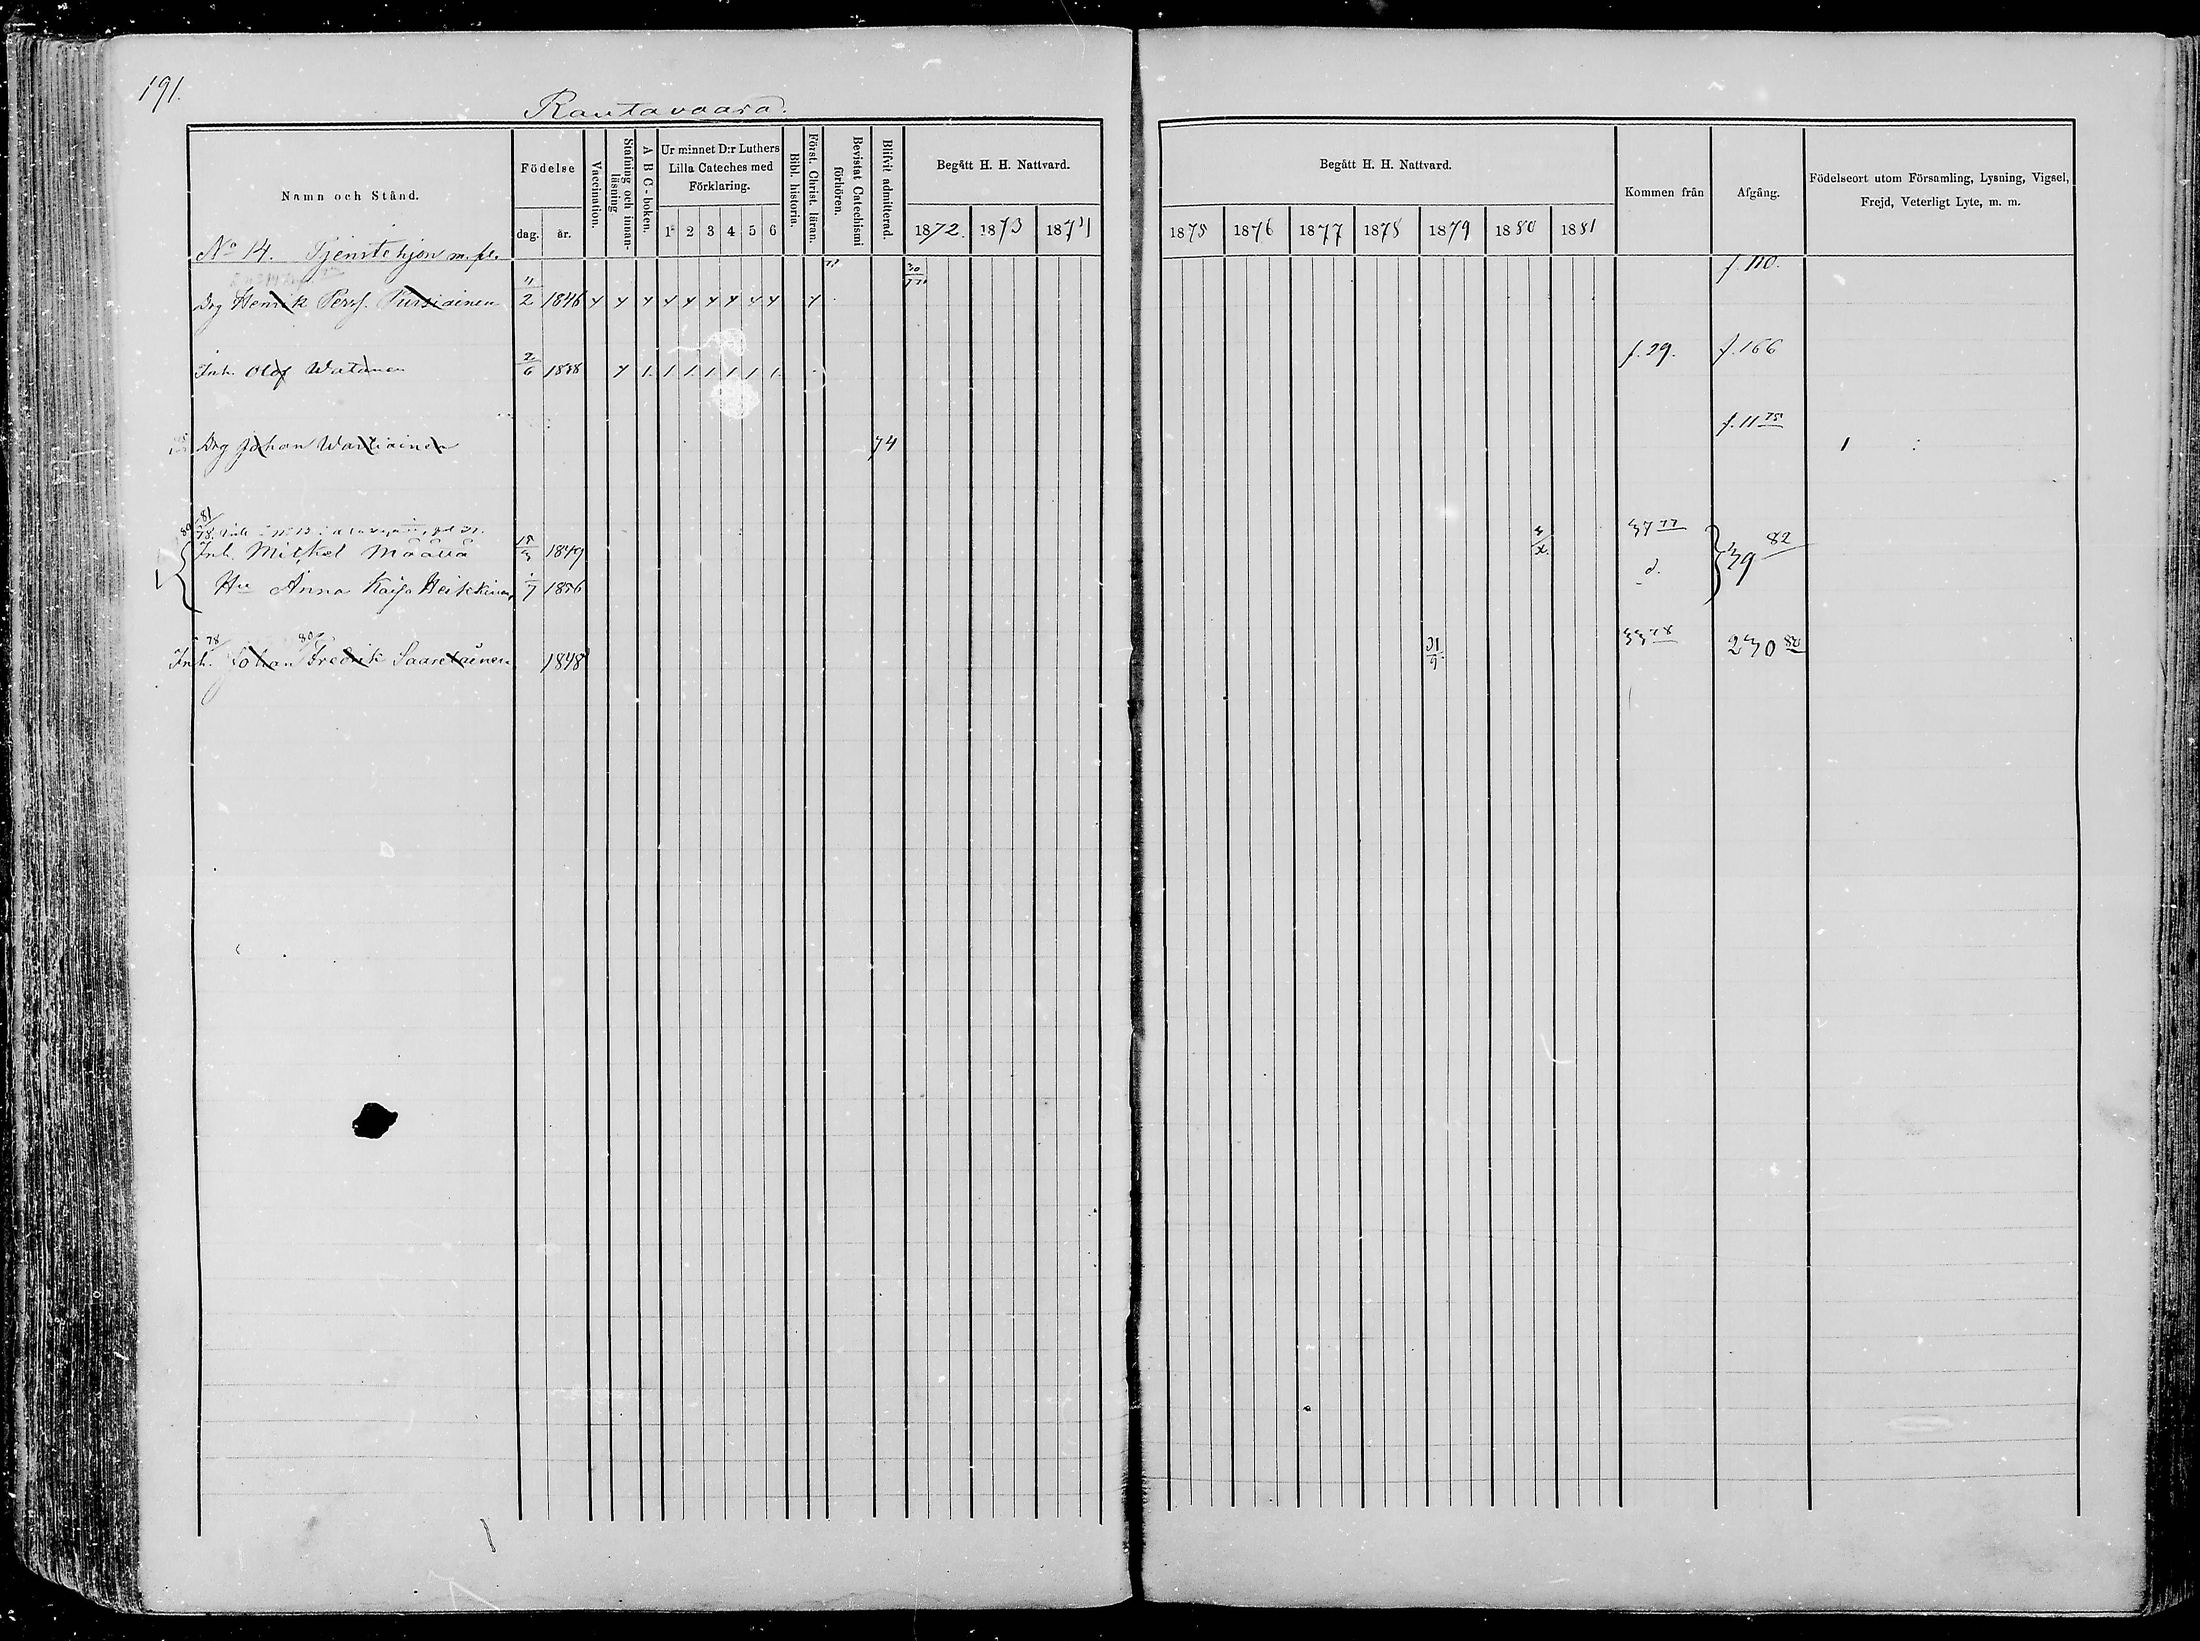 191.
Rautavaara.
Namn och Stånd.
Födelse
dag. år.
Vaccination.
Stafning och innan-läsning
A B C-boken.
Ur minnet D:r Luthers Lilla Cateches med Förklaring.
1 2 3 4 5 6
Bibl. historia.
Först. Christ. läran.
Bevistat Catechismi förhören.
Blifvit admitterad.
Begått H. H. Nattvard.
1872. 1873 1874
Begått H. H. Nattvard.
1875 1876 1877 1878 1879 1880 1881
Kommen från
Afgång.
Födelseort utom Församling, Lysning, Vigsel, Frejd, Veterligt Lyte, m. m.
No 14. Tjenstehjon m. fl.
Drg Henrik Persf. Pursiainen 2 1846 f. 110.
Inh. Olof Watanen 2/6 1838 f. 29. f. 166
Drg Johan Wartiainen 74 f. 11 75
Inh. Mitkel Määttä 1849 37 77 39 82
Hu Anna Kaisa Heikkinen 7 1856 d.
Inh. 78 Johan Fredrik 80 Saarelainen 1848 31/9 33 78 230 80